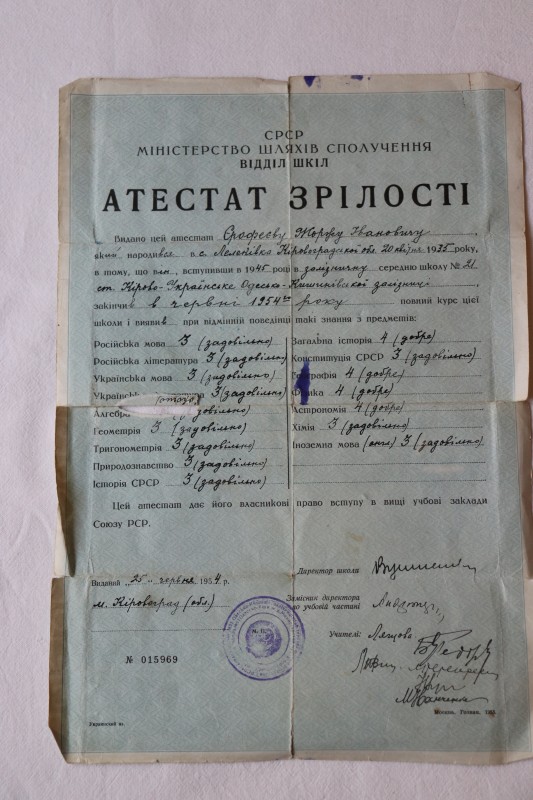 СРСР
МІНІСТЕРСТВО ШЛЯХІВ СПОЛУЧЕННЯ
ВІДДІЛ ШКІЛ
АТЕСТАТ ЗРІЛОСТІ
Видано цей атестат Єрофеєву Жоржу Івановичу,
який народився в с. Лелеківка Кіровоградської обл. 20 квітня 1935 року,
в тому, що він, вступивши в 1945 році в залізничну середню школу № 21
ст. Кірово-Українське Одесько-Кишинівської залізниці
закінчив в червні 1954 року повний курс цієї
школи і виявив при відмінній поведінці такі знання з предметів:
Російська мова 3 (задовільно) Загальна історія 4 (добре)
Російська література 3 (задовільно) Конституція СРСР 3 (задовільно)
Українська мова 3 (задовільно) Географія 4 (добре)
3 (задовільно) 4 (добре)
Алгебра (задовільно) Астрономія 4 (добре)
Геометрія 3 (задовільно) Хімія 3 (задовільно)
Тригонометрія 3 (задовільно) Іноземна мова (англ) 3 (задовільно)
Природознавство 3 (задовільно)
Історія СРСР 3 (задовільно)
Цей атестат дає його власникові право вступу в вищі учбові заклади
Союзу РСР.
Виданий „25" червня 1954 р.
м. Кіровоград (обл.)
Директор школи
Заступник директора
по учбовій частині
Учителі:
М. П.
№ 015969
Український яз.